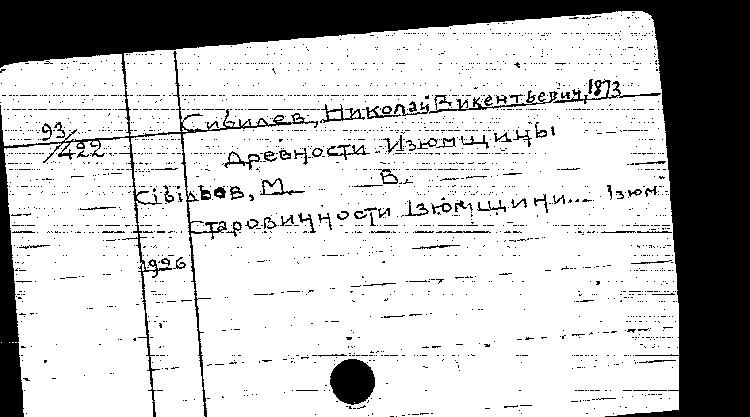 Сибилев, Николай Викентьевич, 1873
93/422
Древности Изюмщины
Сібільов, М. В.
Старовичности Ізюмщини... Ізюм
1926